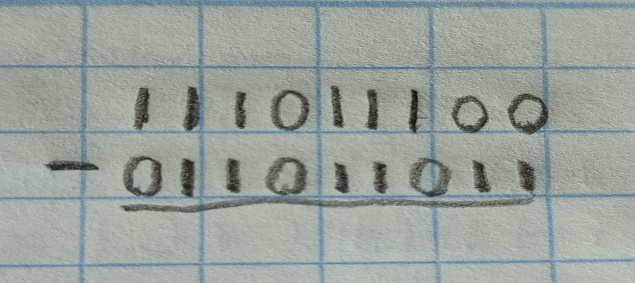 111011100
- 011011011